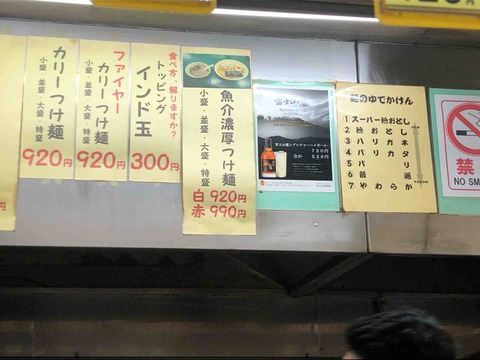 カリーつけ麺
小盛・並盛・大盛・特盛
920円
ファイヤー
カリーつけ麺
小盛・並盛・大盛・特盛
920円
食べ方、解りますか?
トッピング
インド玉
300円
魚介濃厚つけ麺
小盛・並盛・大盛・特盛
白 920円
赤 990円
富士山麓
富士山麓シグニチャーハイボール
720円
なか 520円
麺のゆでかけん
1 スーパー粉おとし
2 粉おとし
3 ハリガネ
4 バリカタ
5
6 普通
7 やわらか
禁
NO SM